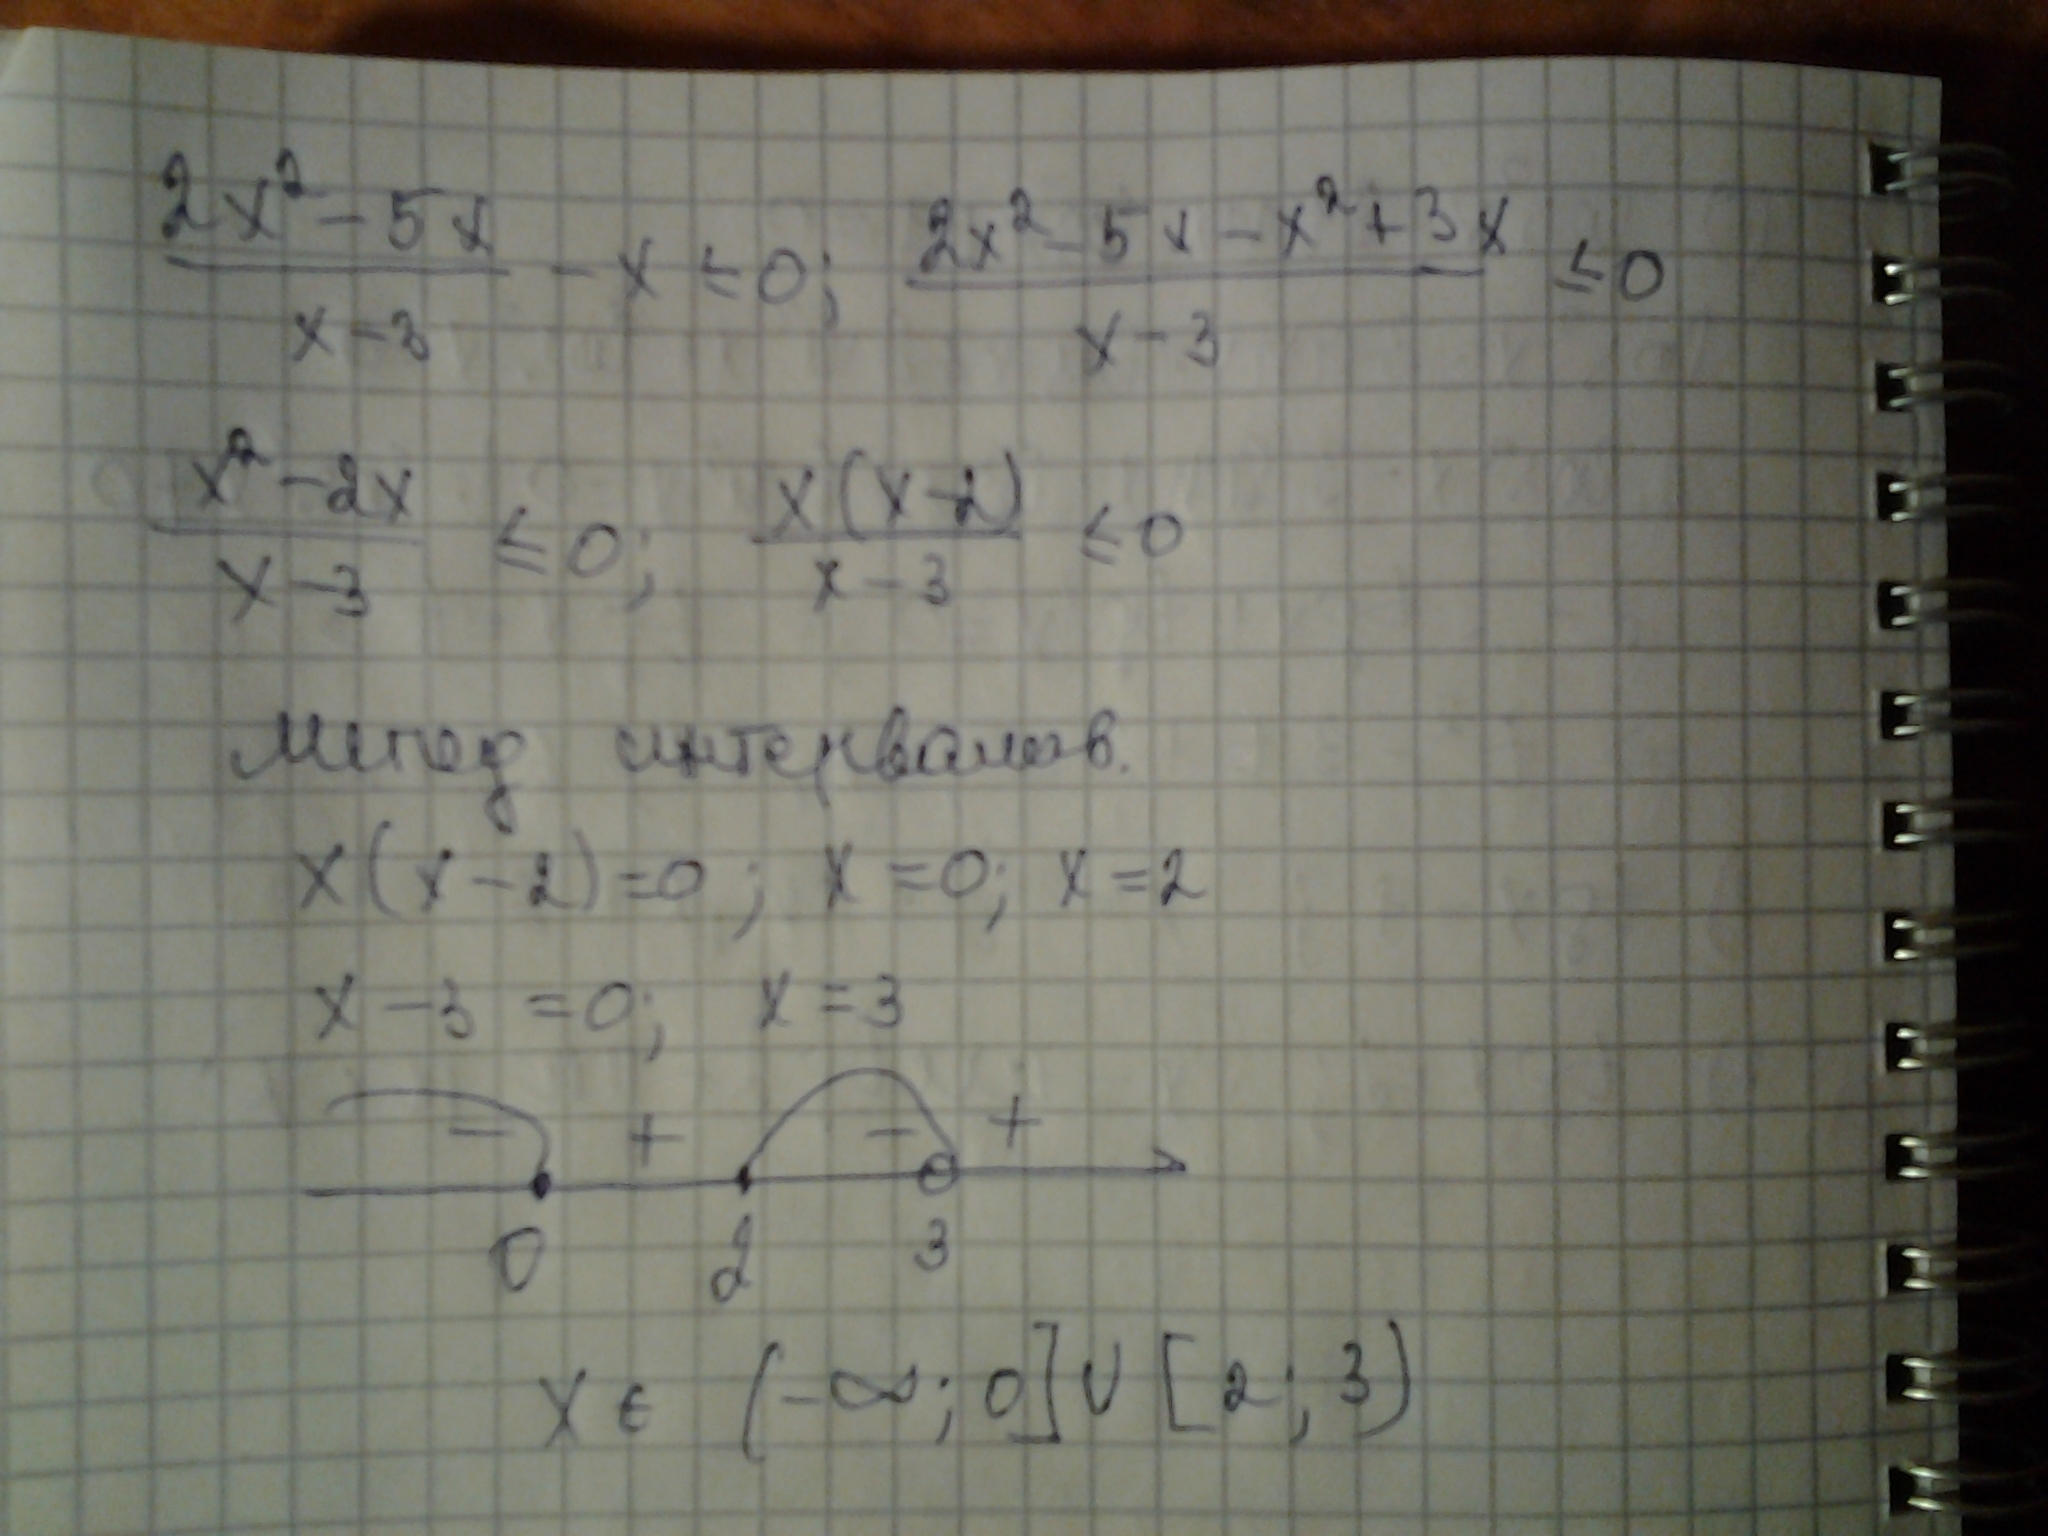 (2x² - 5x)/(x - 3) - x ≤ 0; (2x² - 5x - x² + 3x)/(x - 3) ≤ 0
(x² - 2x)/(x - 3) ≤ 0; x(x - 2)/(x - 3) ≤ 0
Метод интервалов.
x(x - 2) = 0; x = 0; x = 2
x - 3 = 0; x = 3
- + - +
0 2 3
x ∈ (-∞; 0] ∪ [2; 3)